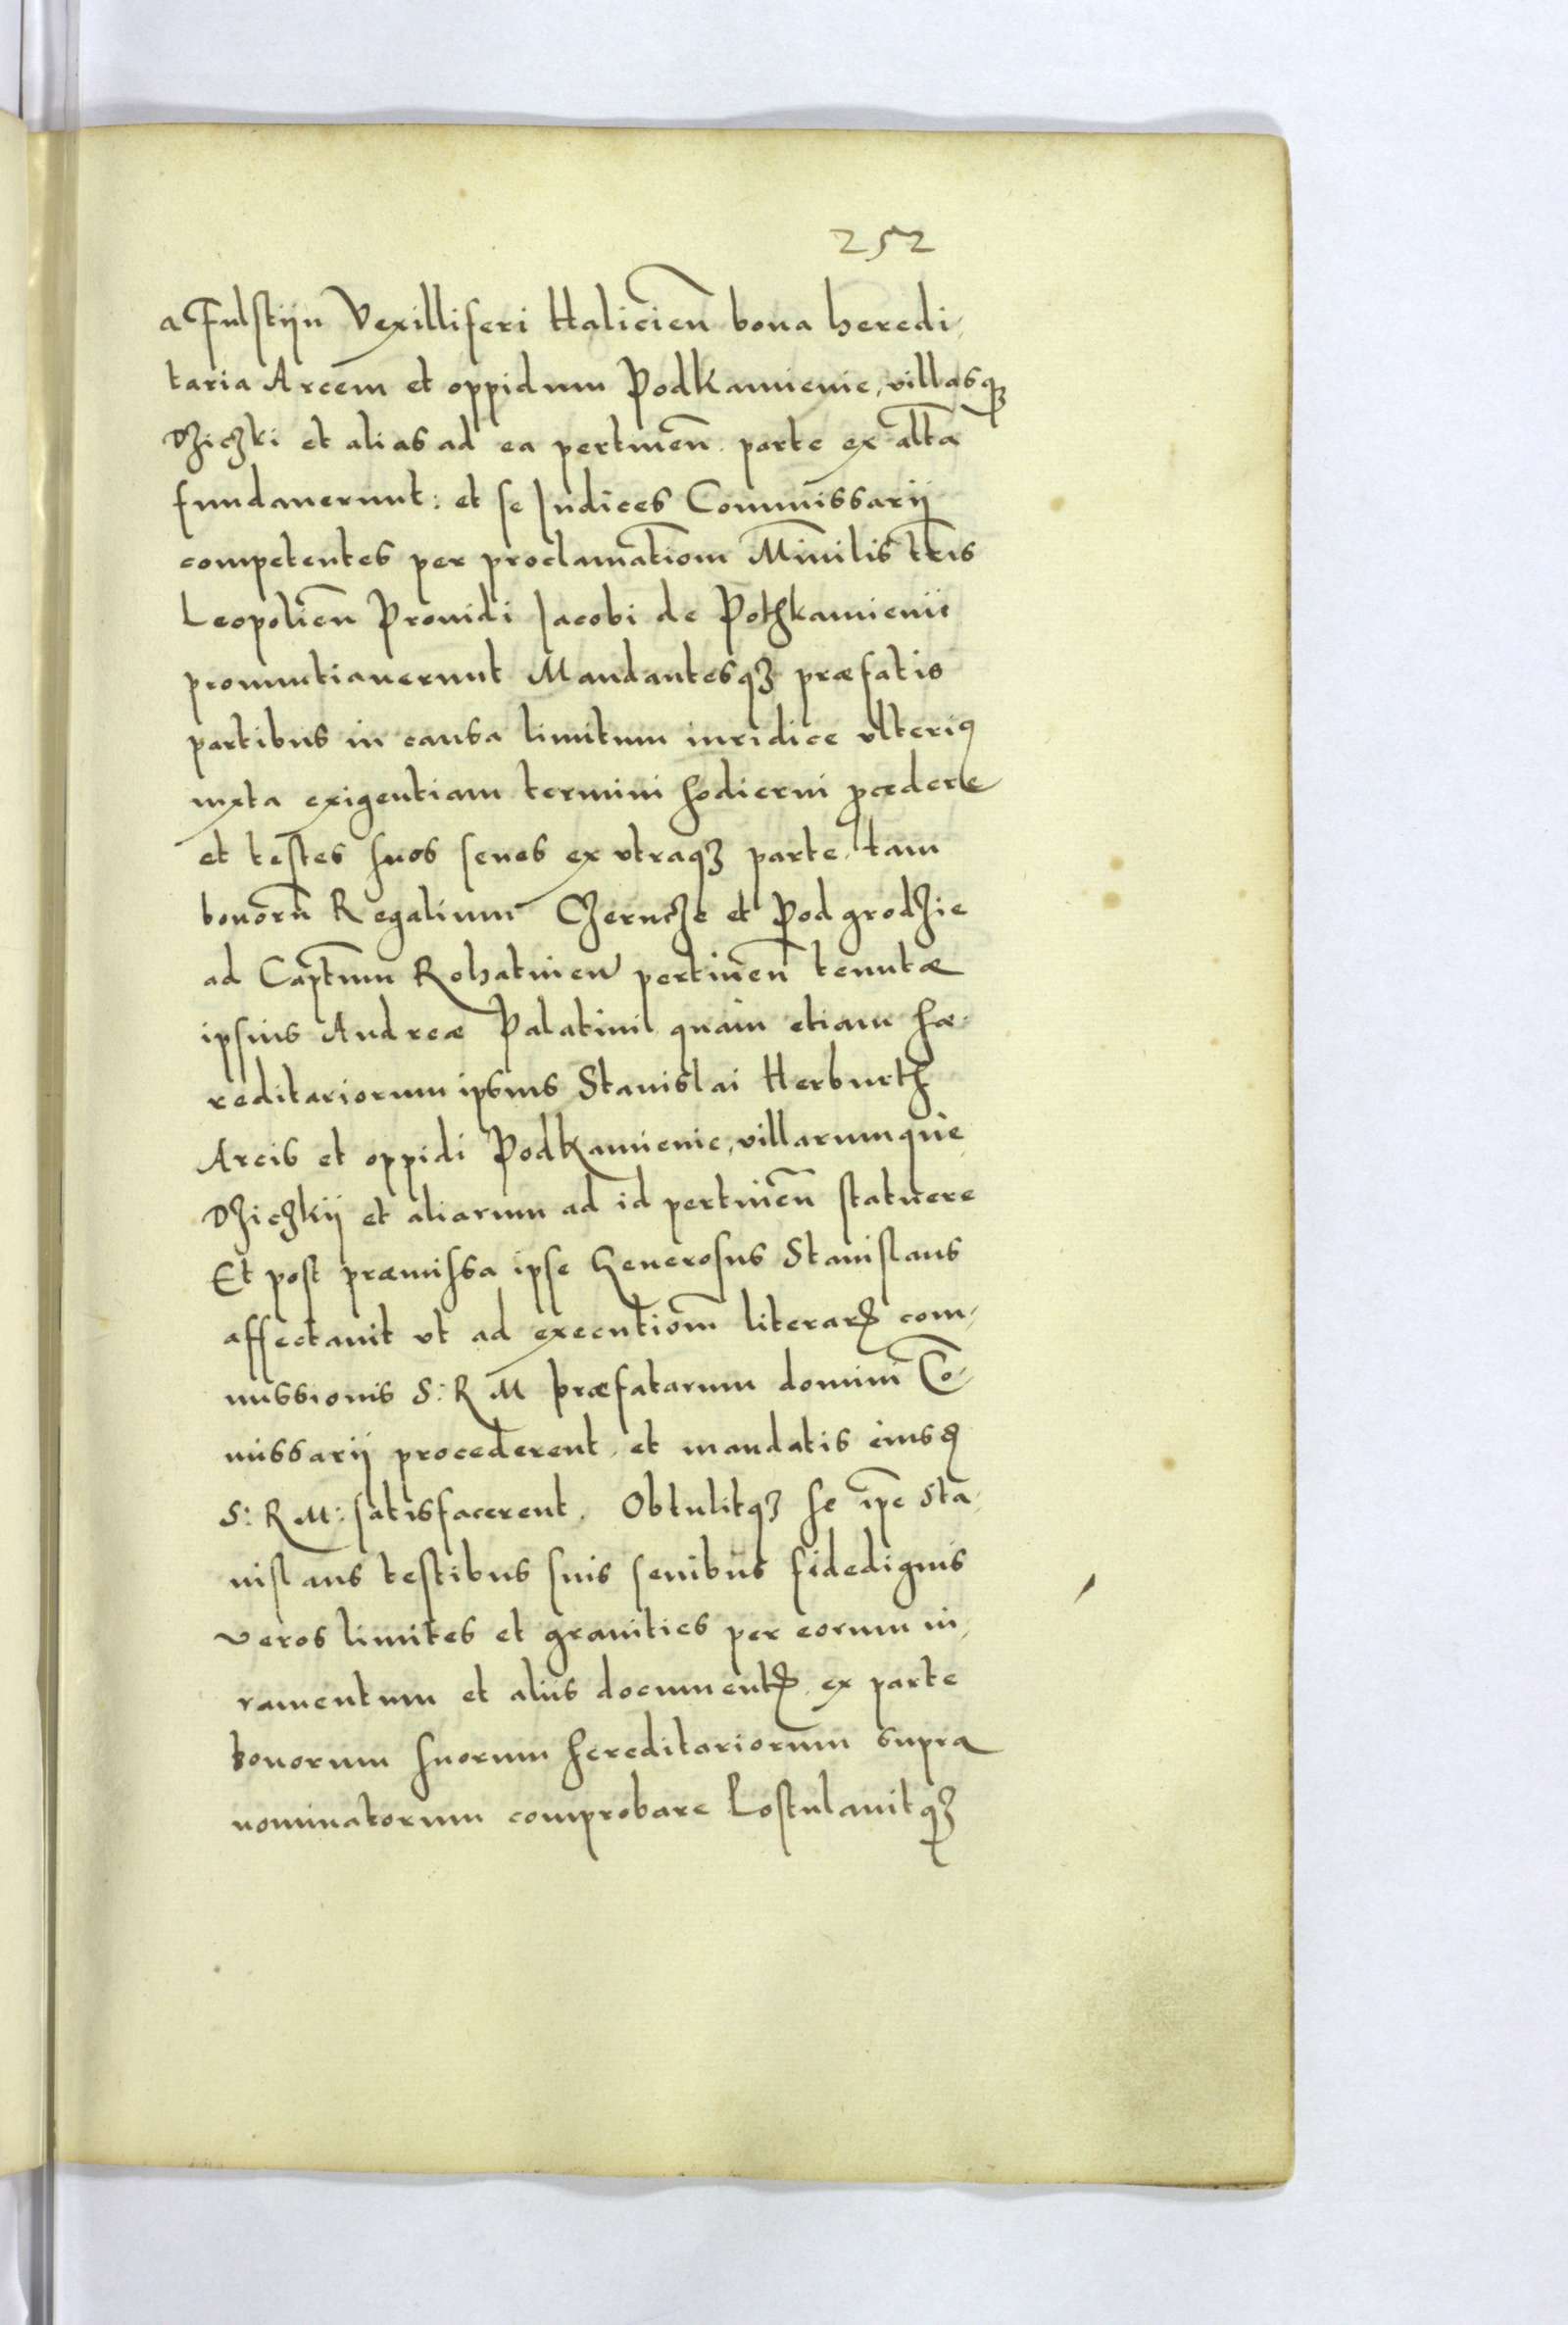 252
a Fulstijn Vexilliferi Halicien̄ bona heredi,
taria Arcem et oppidum Podkamienie, villasqȝ
Dzicȝki et alias ad ea pertinen̄ parte ex alt̄a
fundauerunt: et se Iudices Commissarij
competentes per proclamatiom̄ Minilis̄ tr̄is
Leopolien̄ Prouidi Iacobi de Pothkamienie
pronuntiauerunt Mandantesqȝ præfatis
partibus in causa limitum iuridice vlteriꝰ
iuxta exigentiam termini hodierni ꝓcedere
et testes suos senes ex vtraqȝ parte, tam
bonorū Regalium Cȝerncȝe et Podgrodȝie
ad Capt̄um Rohatinien̄ pertinen̄ tenutæ
ipsius Andreæ Palatini quam etiam hæ-
reditariorum ipsius Stanislai Herburth
Arcis et oppidi Podkamienie, villarumque
Dȝicȝkij et aliarum ad id pertinen̄ statuere
Et post præmissa ipse Generosus Stanislaus
affectauit vt ad executiom̄ literarꝝ com-
missionis S: R M præfatarum domini Cō-
missarij procederent, et mandatis eiusꝺ
S: R M: satisfacerent. Obtulitqȝ se ip̄e Sta-
nislaus testibus suis senibus fidedignis
veros limites et granities per eorum iu,
ramentum et aliis documentꝭ ex parte
bonorum suorum hereditariorum supra
nominatorum comprobare Postulauitqȝ